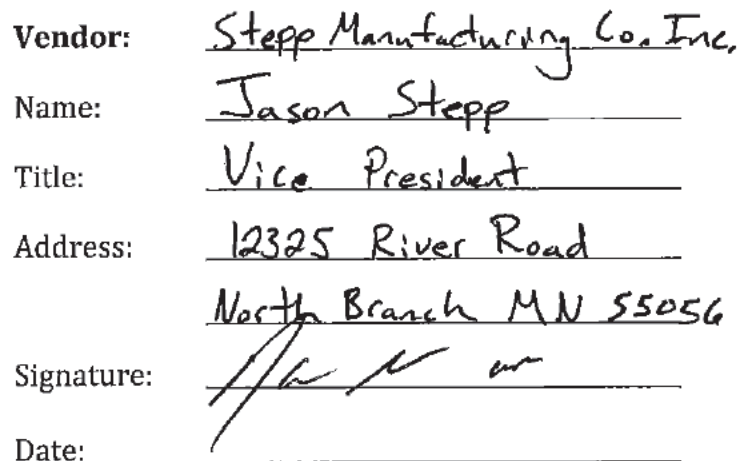 Vendor: Stepp Manufacturing Co. Inc.
Name: Jason Stepp
Title: Vice President
Address: 12325 River Road
North Branch MN 55056
Signature:
Date: